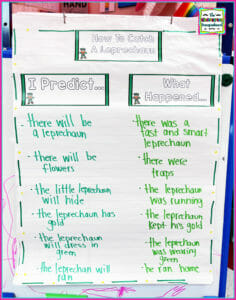 How To Catch
A Leprechaun
I Predict...
there will be
a leprechaun
there will be
flowers
the little leprechaun
will hide
the leprechaun has
gold
the leprechaun
will dress in
green
the leprechan will
ran
What
Happened...
there was a
fast and smart
leprechaun
there were
traps
the leprechaun
was running
the leprechaun
kept his gold
the leprechaun
was wearing
green
he ran home